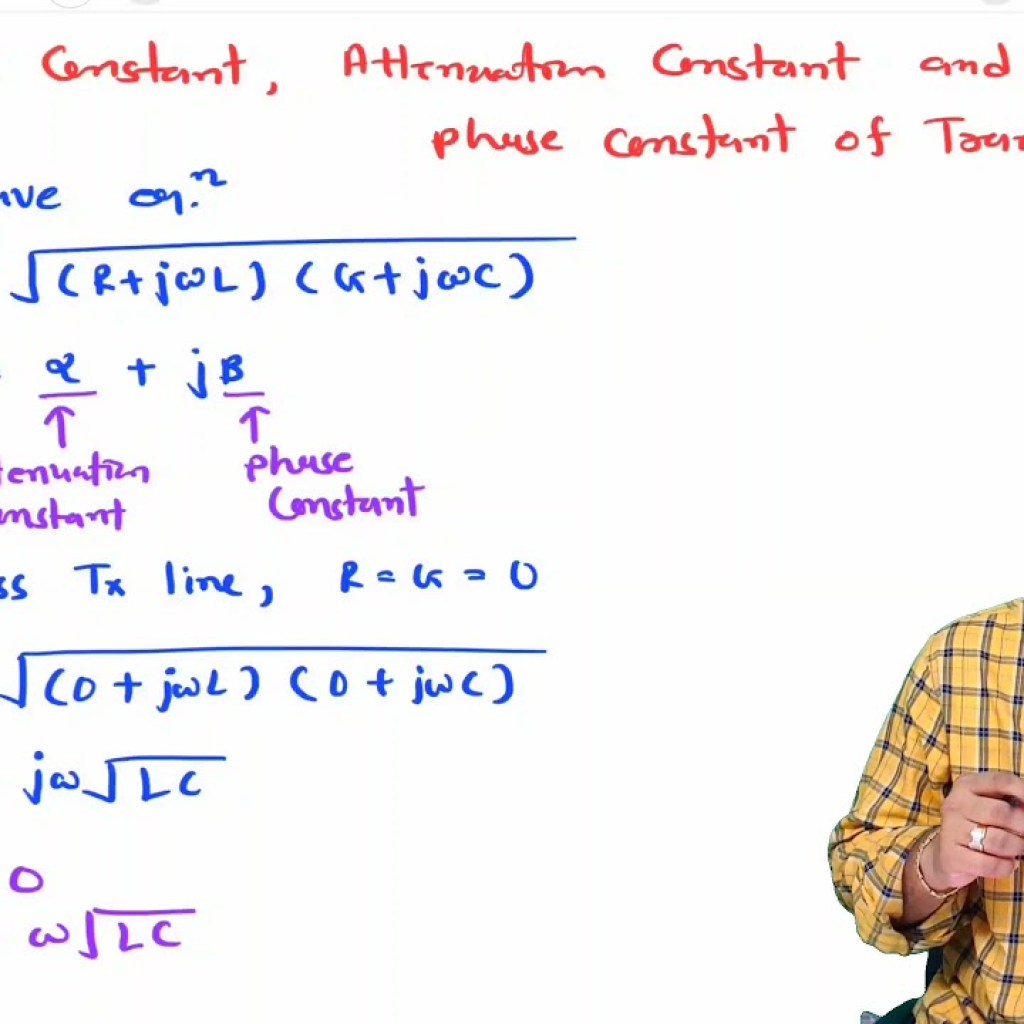 Constant, Attenuation Constant and
phase constant of Tran
ave eq.ⁿ
√(R+jωL) (G+jωC)
α + jβ
↑ ↑
tenuation phase
onstant Constant
ss Tx line, R = G = 0
√(0 + jωL) (0 + jωC)
jω√LC
0
ω√LC